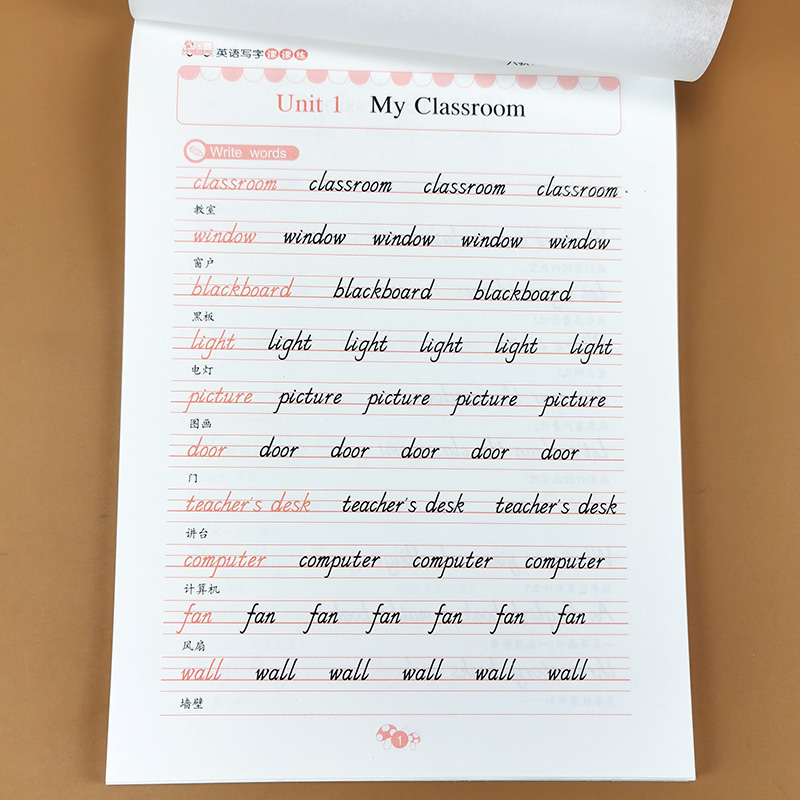 英语写字课课练
Unit 1 My Classroom
Write words
classroom classroom classroom classroom
教室
window window window window window
窗户
blackboard blackboard blackboard
黑板
light light light light light light
电灯
picture picture picture picture picture
图画
door door door door door door
门
teacher's desk teacher's desk teacher's desk
讲台
computer computer computer computer
计算机
fan fan fan fan fan fan fan
风扇
wall wall wall wall wall wall
墙壁
1